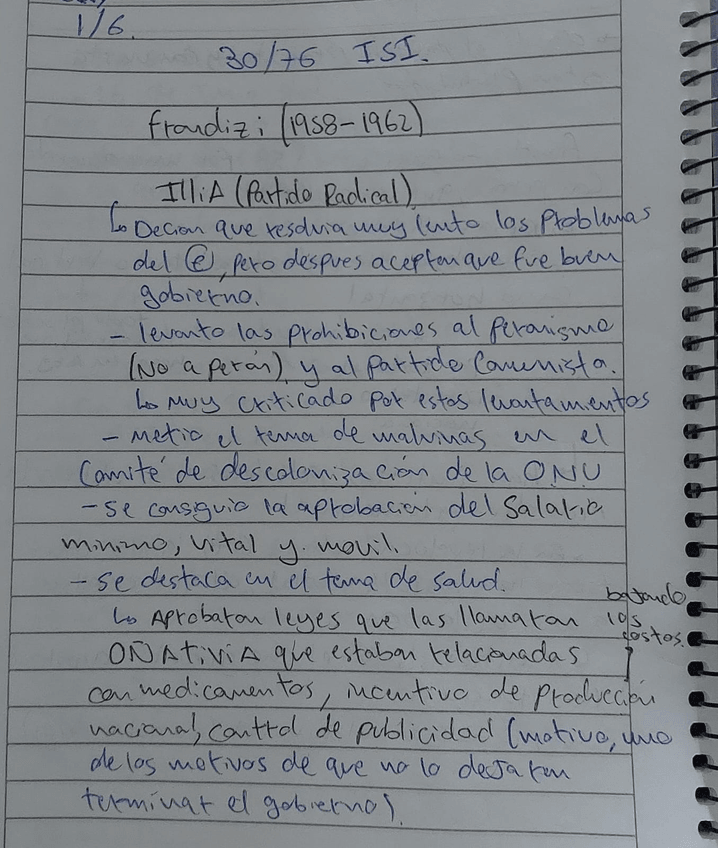 1/6.
30/76 ISI.
Frondizi (1958-1962)
IlliA (Partido Radical)
↳ Decian que resolvia muy lento los Problemas
del (e), pero despues acepten que fue buen
gobierno.
- levanto las prohibiciones al Peronismo
(No a Perón) y al Partido Comunista.
↳ Muy criticado por estos levantamientos
- metio el tema de malvinas en el
Comité de descolonización de la ONU
- se consiguio la aprobación del Salario
minimo, vital y movil.
- se destaca en el tema de salud.
↳ Aprobaron leyes que las llamaron
ONAtiViA que estaban relacionadas
con medicamentos, incentivo de Producción
nacional, control de publicidad (motivo, uno
de los motivos de que no lo dejaron
terminar el gobierno).
bajando
los
costos.